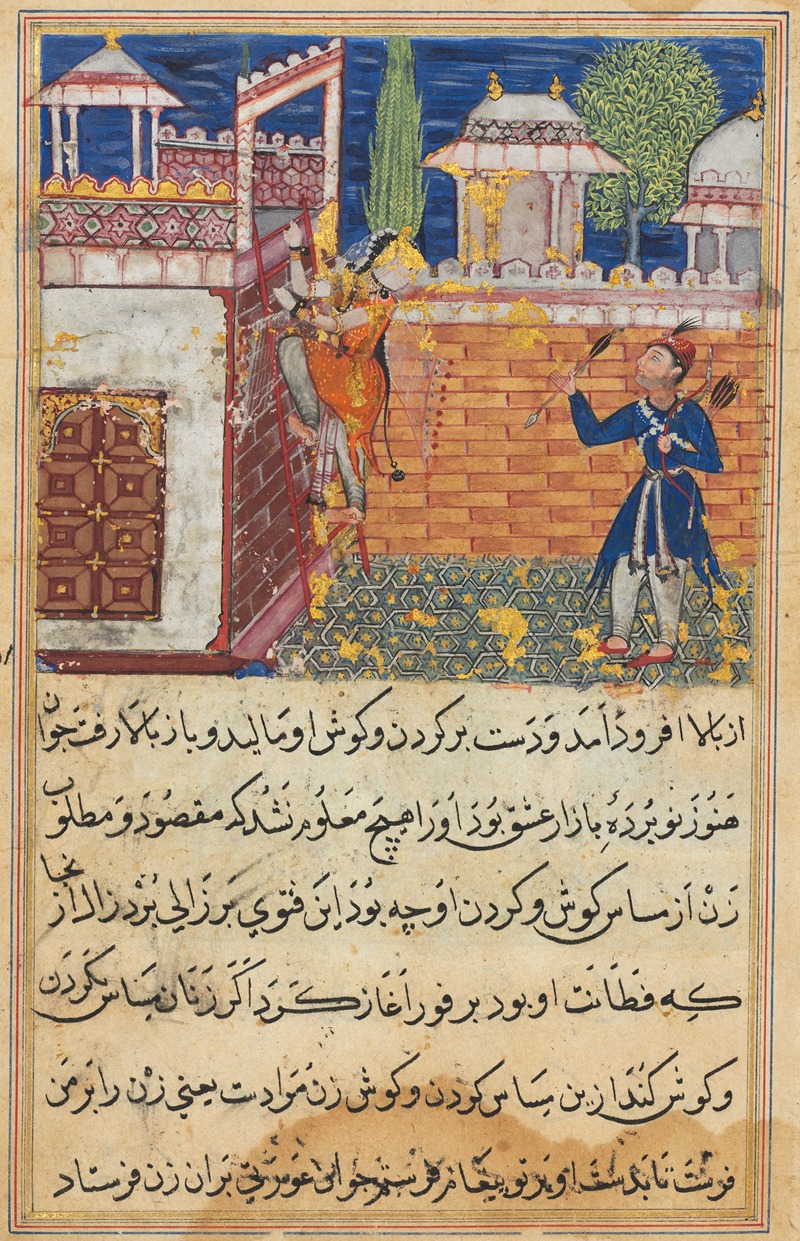 از بالا افرود آمد و دست بر کردن و کوش او مالید و باز بالا رفت جوان
هنوز نو بردهٔ بازار عشق بود او را هیچ معلوم نشد که مقصود و مطلوب
زن از مساس کوش و کردن او چه بود این فتوی بر زالی برد زال از نجا
که فطانت او بود بر فور آغاز کرد اگر زنان مساس کردن
و کوش کنند ازین مساس کردن و کوش زن مرادست یعنی زن را بر من
فرست تا بدست او بر تو پیغام فرستم جوان عورتی بر ان زن فرستاد